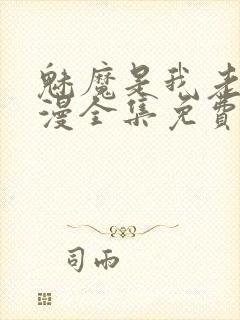 魅魔是我老
漫全集免费
司雨